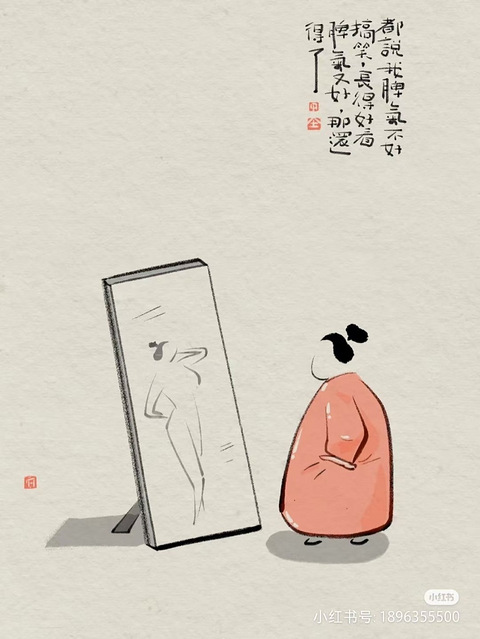 都說我脾氣不好
搞笑，長得好看
脾氣又好，那還
得了
小红书
小红书号: 1896355500